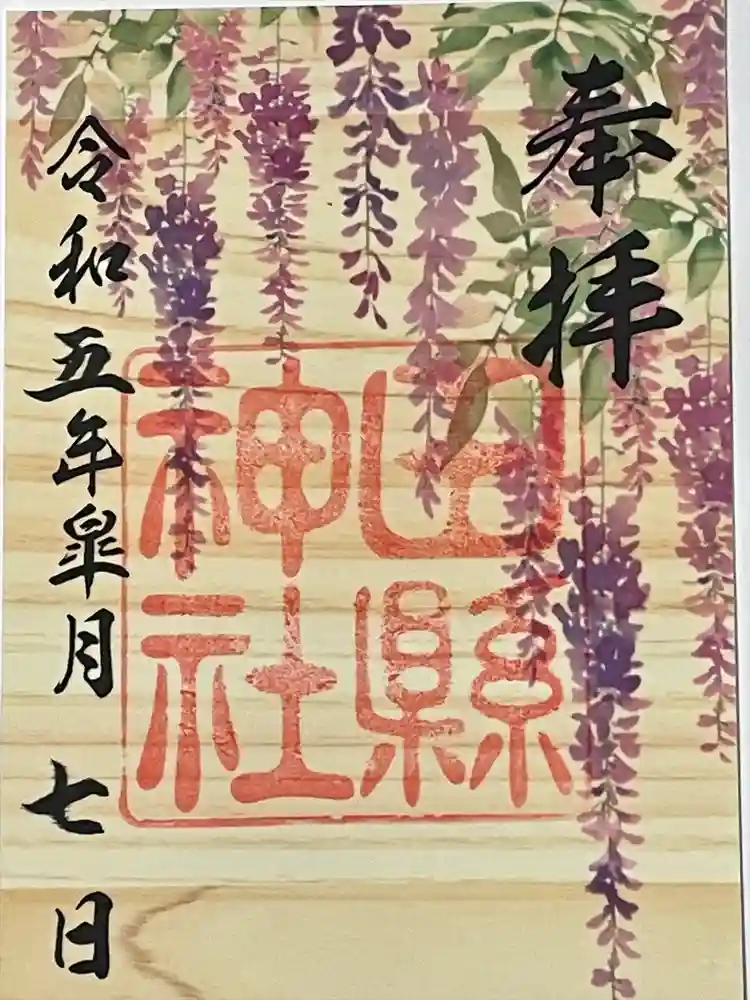 奉拝
山縣神社
令和五年皐月七日